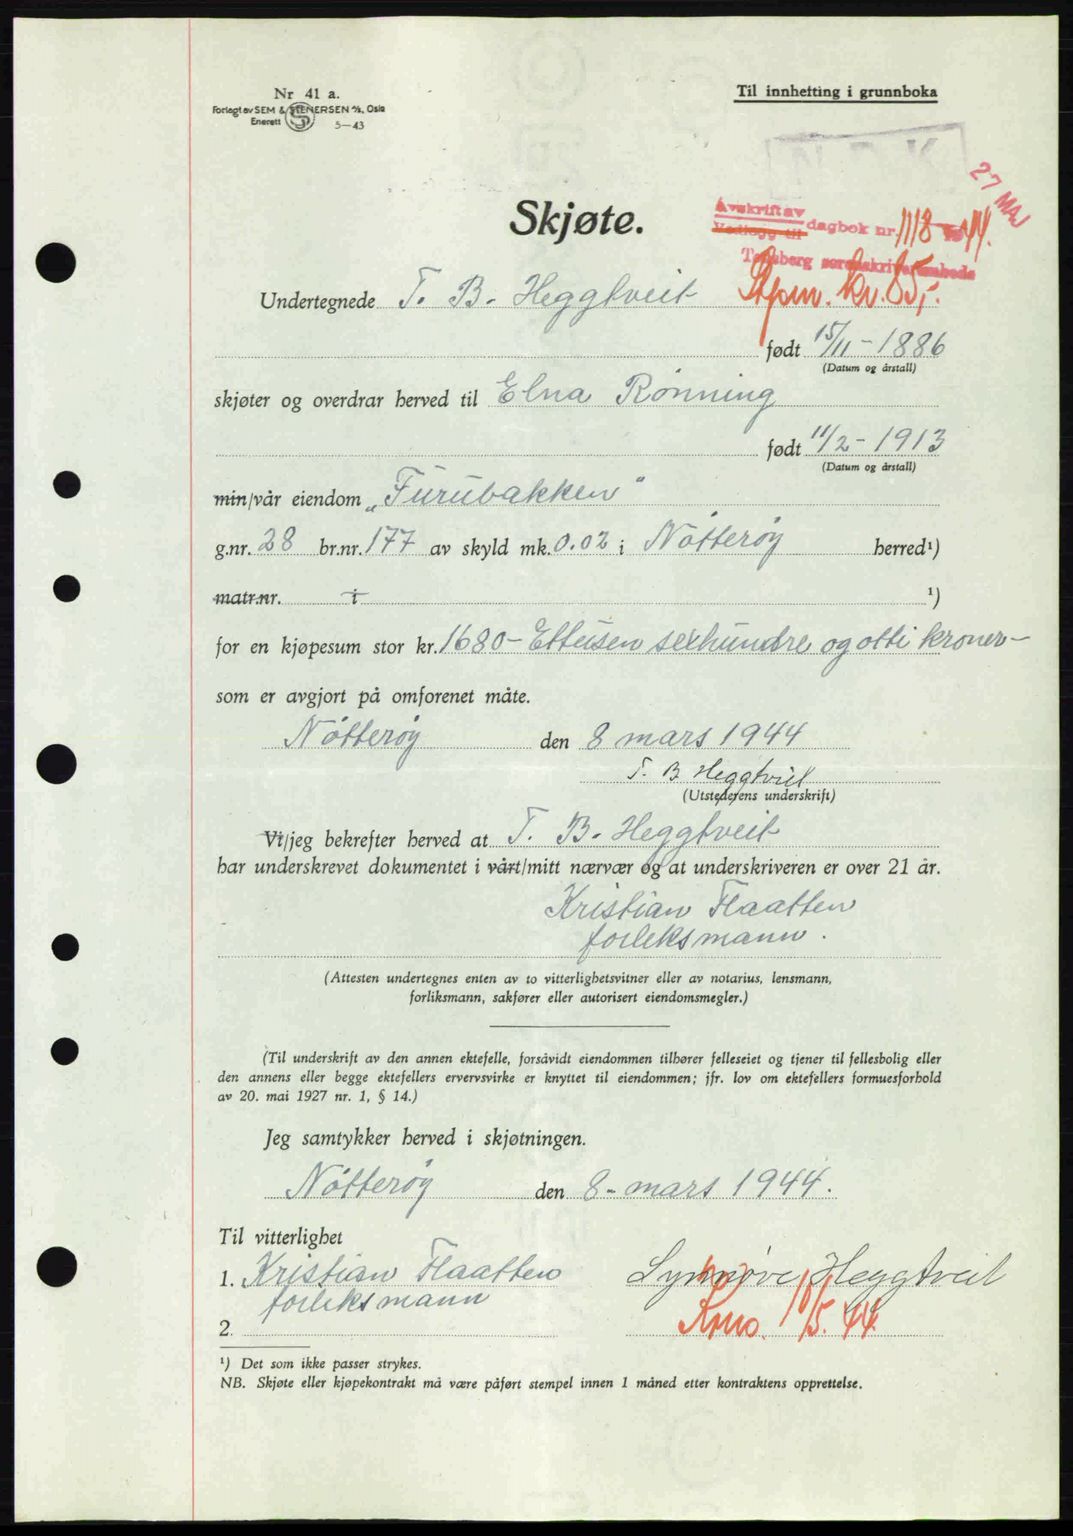 Nr 41 a.
Forlagt av SEM & STENERSEN A/S, Oslo
Enerett 5-43
Til innhefting i grunnboka
N.D.K.
27 MAJ
Skjøte.
Avskrift av
Vedlegg til dagbok nr. 1118 - 1944.
Tønsberg sorenskriverembede
Stpm. kr. 85,-.
Undertegnede T. B. Heggtveit
født 15/11 - 1886
(Datum og årstall)
skjøter og overdrar herved til Elna Rønning
født 11/2 - 1913
(Datum og årstall)
min/vår eiendom „Furubakken"
g.nr. 28 br.nr. 177 av skyld mk. 0.02 i Nøtterøy herred¹)
matr.nr. i ¹)
for en kjøpesum stor kr. 1680- Ettusen sekshundre og otti kroner-
som er avgjort på omforenet måte.
Nøtterøy den 8 mars 1944
T. B Heggtveit
(Utstederens underskrift)
Vi/jeg bekrefter herved at T. B. Heggtveit
har underskrevet dokumentet i vårt/mitt nærvær og at underskriveren er over 21 år.
Kristian Flaatten
forleksmann.
(Attesten undertegnes enten av to vitterlighetsvitner eller av notarius, lensmann,
forliksmann, sakfører eller autorisert eiendomsmegler.)
(Til underskrift av den annen ektefelle, forsåvidt eiendommen tilhører felleseiet og tjener til fellesbolig eller
den annens eller begge ektefellers ervervsvirke er knyttet til eiendommen; jfr. lov om ektefellers formuesforhold
av 20. mai 1927 nr. 1, § 14.)
Jeg samtykker herved i skjøtningen.
Nøtterøy den 8- mars 1944.
Til vitterlighet
1. Kristian Flaatten Synnøve Heggtveit
forleksmann
2.
10/5.44
¹) Det som ikke passer strykes.
NB. Skjøte eller kjøpekontrakt må være påført stempel innen 1 måned etter kontraktens opprettelse.